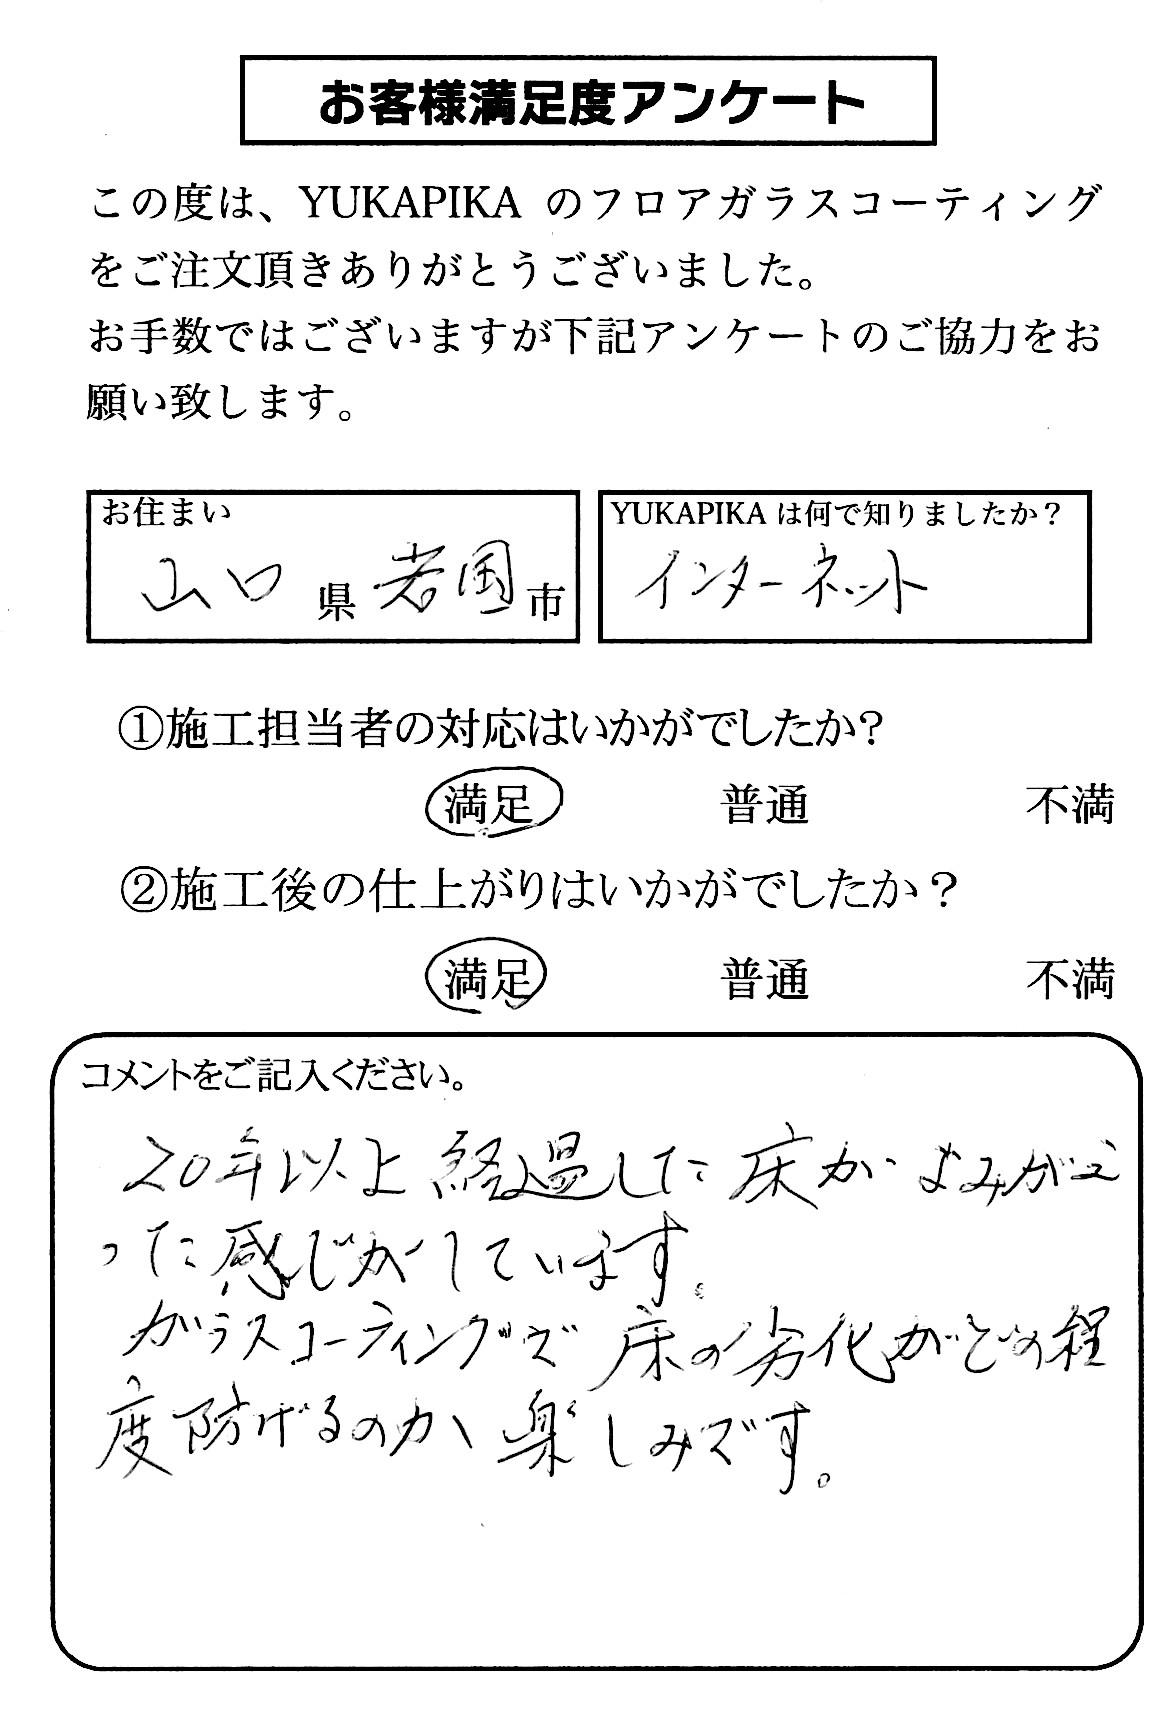 お客様満足度アンケート
この度は、YUKAPIKA のフロアガラスコーティング
をご注文頂きありがとうございました。
お手数ではございますが下記アンケートのご協力をお
願い致します。
お住まい
山口 県 岩国 市
YUKAPIKA は何で知りましたか？
インターネット
①施工担当者の対応はいかがでしたか?
満足 普通 不満
②施工後の仕上がりはいかがでしたか？
満足 普通 不満
コメントをご記入ください。
20年以上経過した床が よみがえ
った感じがしています。
ガラスコーティングで 床の劣化がどの程
度防げるのか、楽しみです。